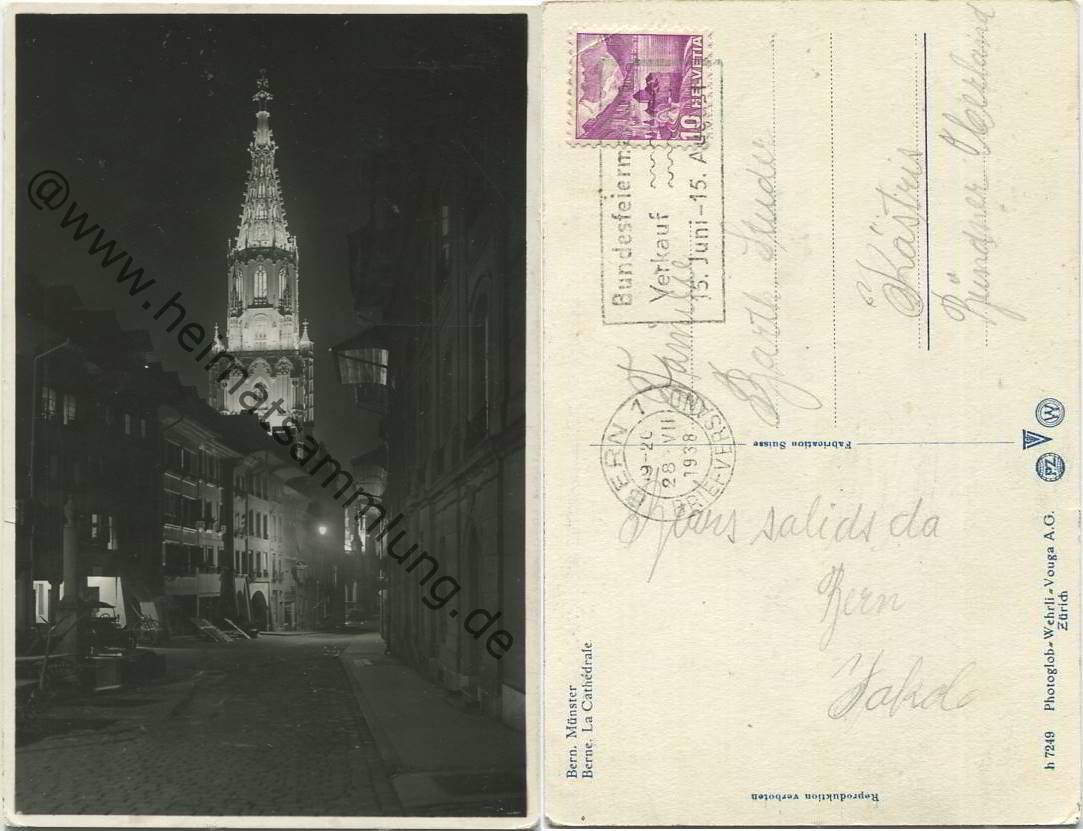 @www.heimatsammlung.de
10 HELVETIA
Bundesfeierm
Verkauf
15. Juni-15. AU
BERN 1
19-20
28.VII
1938
BRIEFVERSAND
Familie
Barth. Studer
Kästris
Bündner Oberland
Fabrication Suisse
PZ
V
W
salids da
Bern
Bern. Münster
Berne. La Cathédrale
h 7249 Photoglob-Wehrli-Vouga A.G.
Zürich
Reproduktion verboten